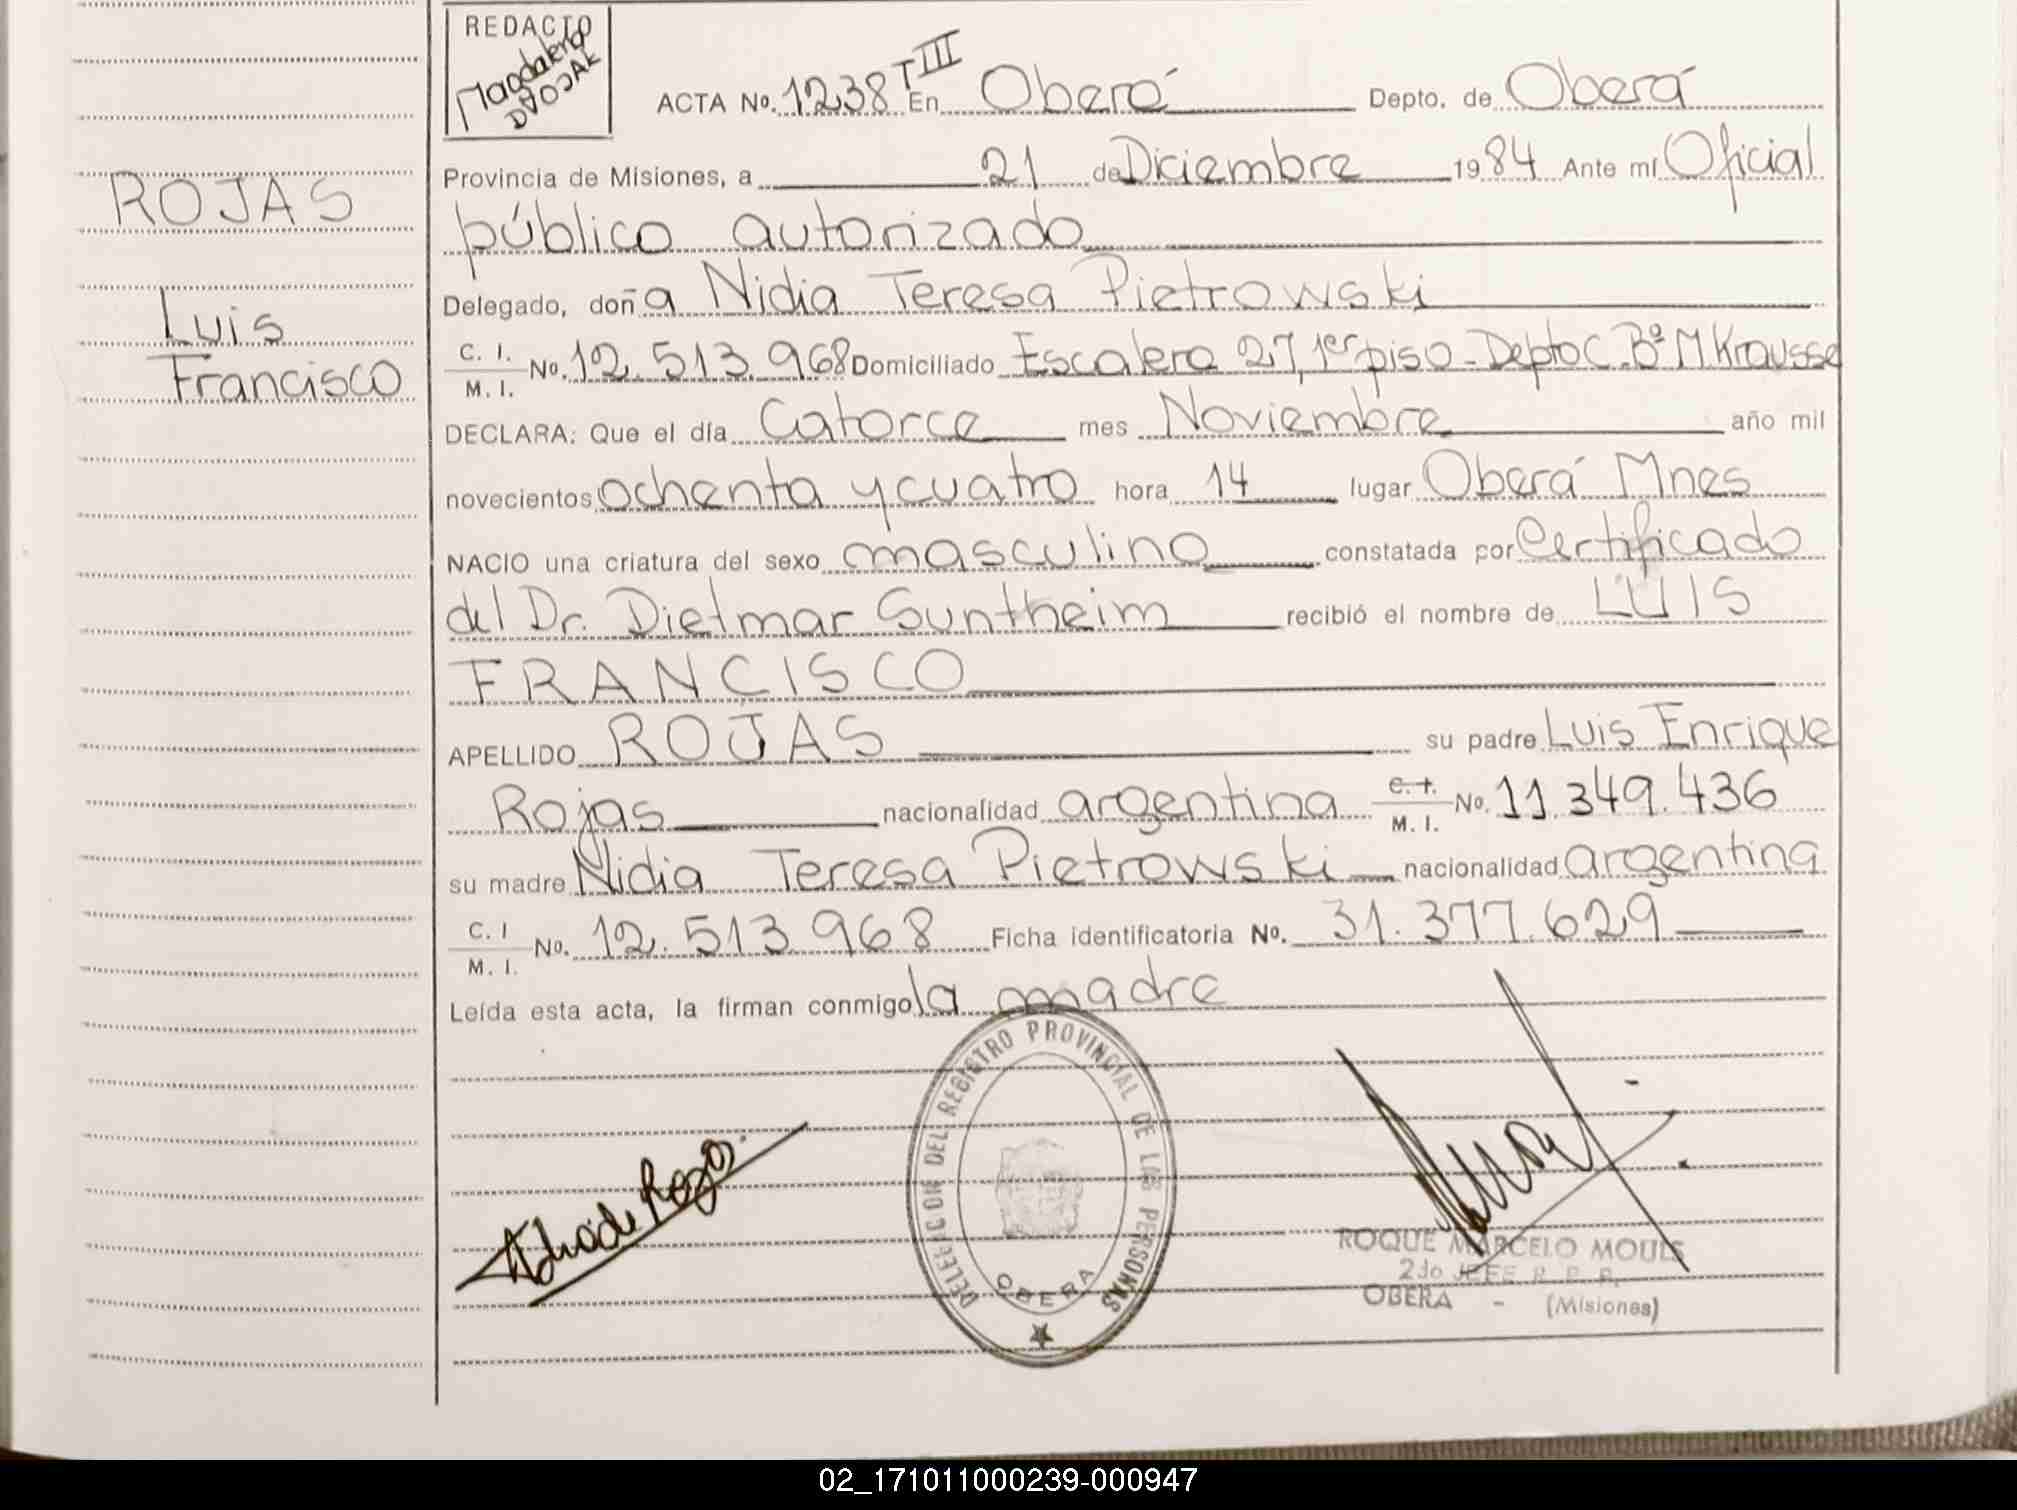 REDACTO
Magdalena
ACTA No. 1238 T III En Oberá Depto. de Oberá
Provincia de Misiones, a 21 de Diciembre 1984 Ante mí Oficial
público autorizado
ROJAS
Delegado, doña Nidia Teresa Pietrowski
Luis
C. I. M. I. No. 12.513.968 Domiciliado Escalera 27, 1er piso - Depto C. Bº M. Krausse
Francisco
DECLARA: Que el día Catorce mes Noviembre año mil
novecientos ochenta y cuatro hora 14 lugar Oberá Mnes
NACIO una criatura del sexo masculino constatada por Certificado
del Dr. Dietmar Suntheim recibió el nombre de LUIS
FRANCISCO
APELLIDO ROJAS su padre Luis Enrique
Rojas nacionalidad argentina C. I. M. I. No. 11.349.436
su madre Nidia Teresa Pietrowski nacionalidad argentina
C. I M. I. No. 12.513.968 Ficha identificatoria No. 31.377.629
Leída esta acta, la firman conmigo la madre
DELEGCON DEL REGISTRO PROVINCIAL DE LAS PERSONAS
OBERA
ROQUE MARCELO MOULS
2do JEFE R. P. P.
OBERA - (Misiones)
02_171011000239-000947